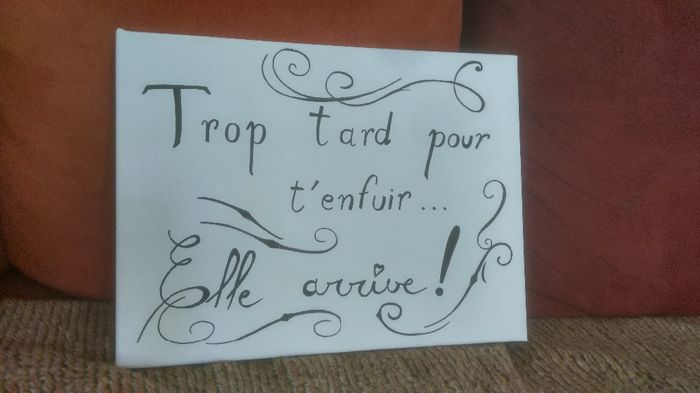 Trop tard pour
t'enfuir...
Elle arrive!